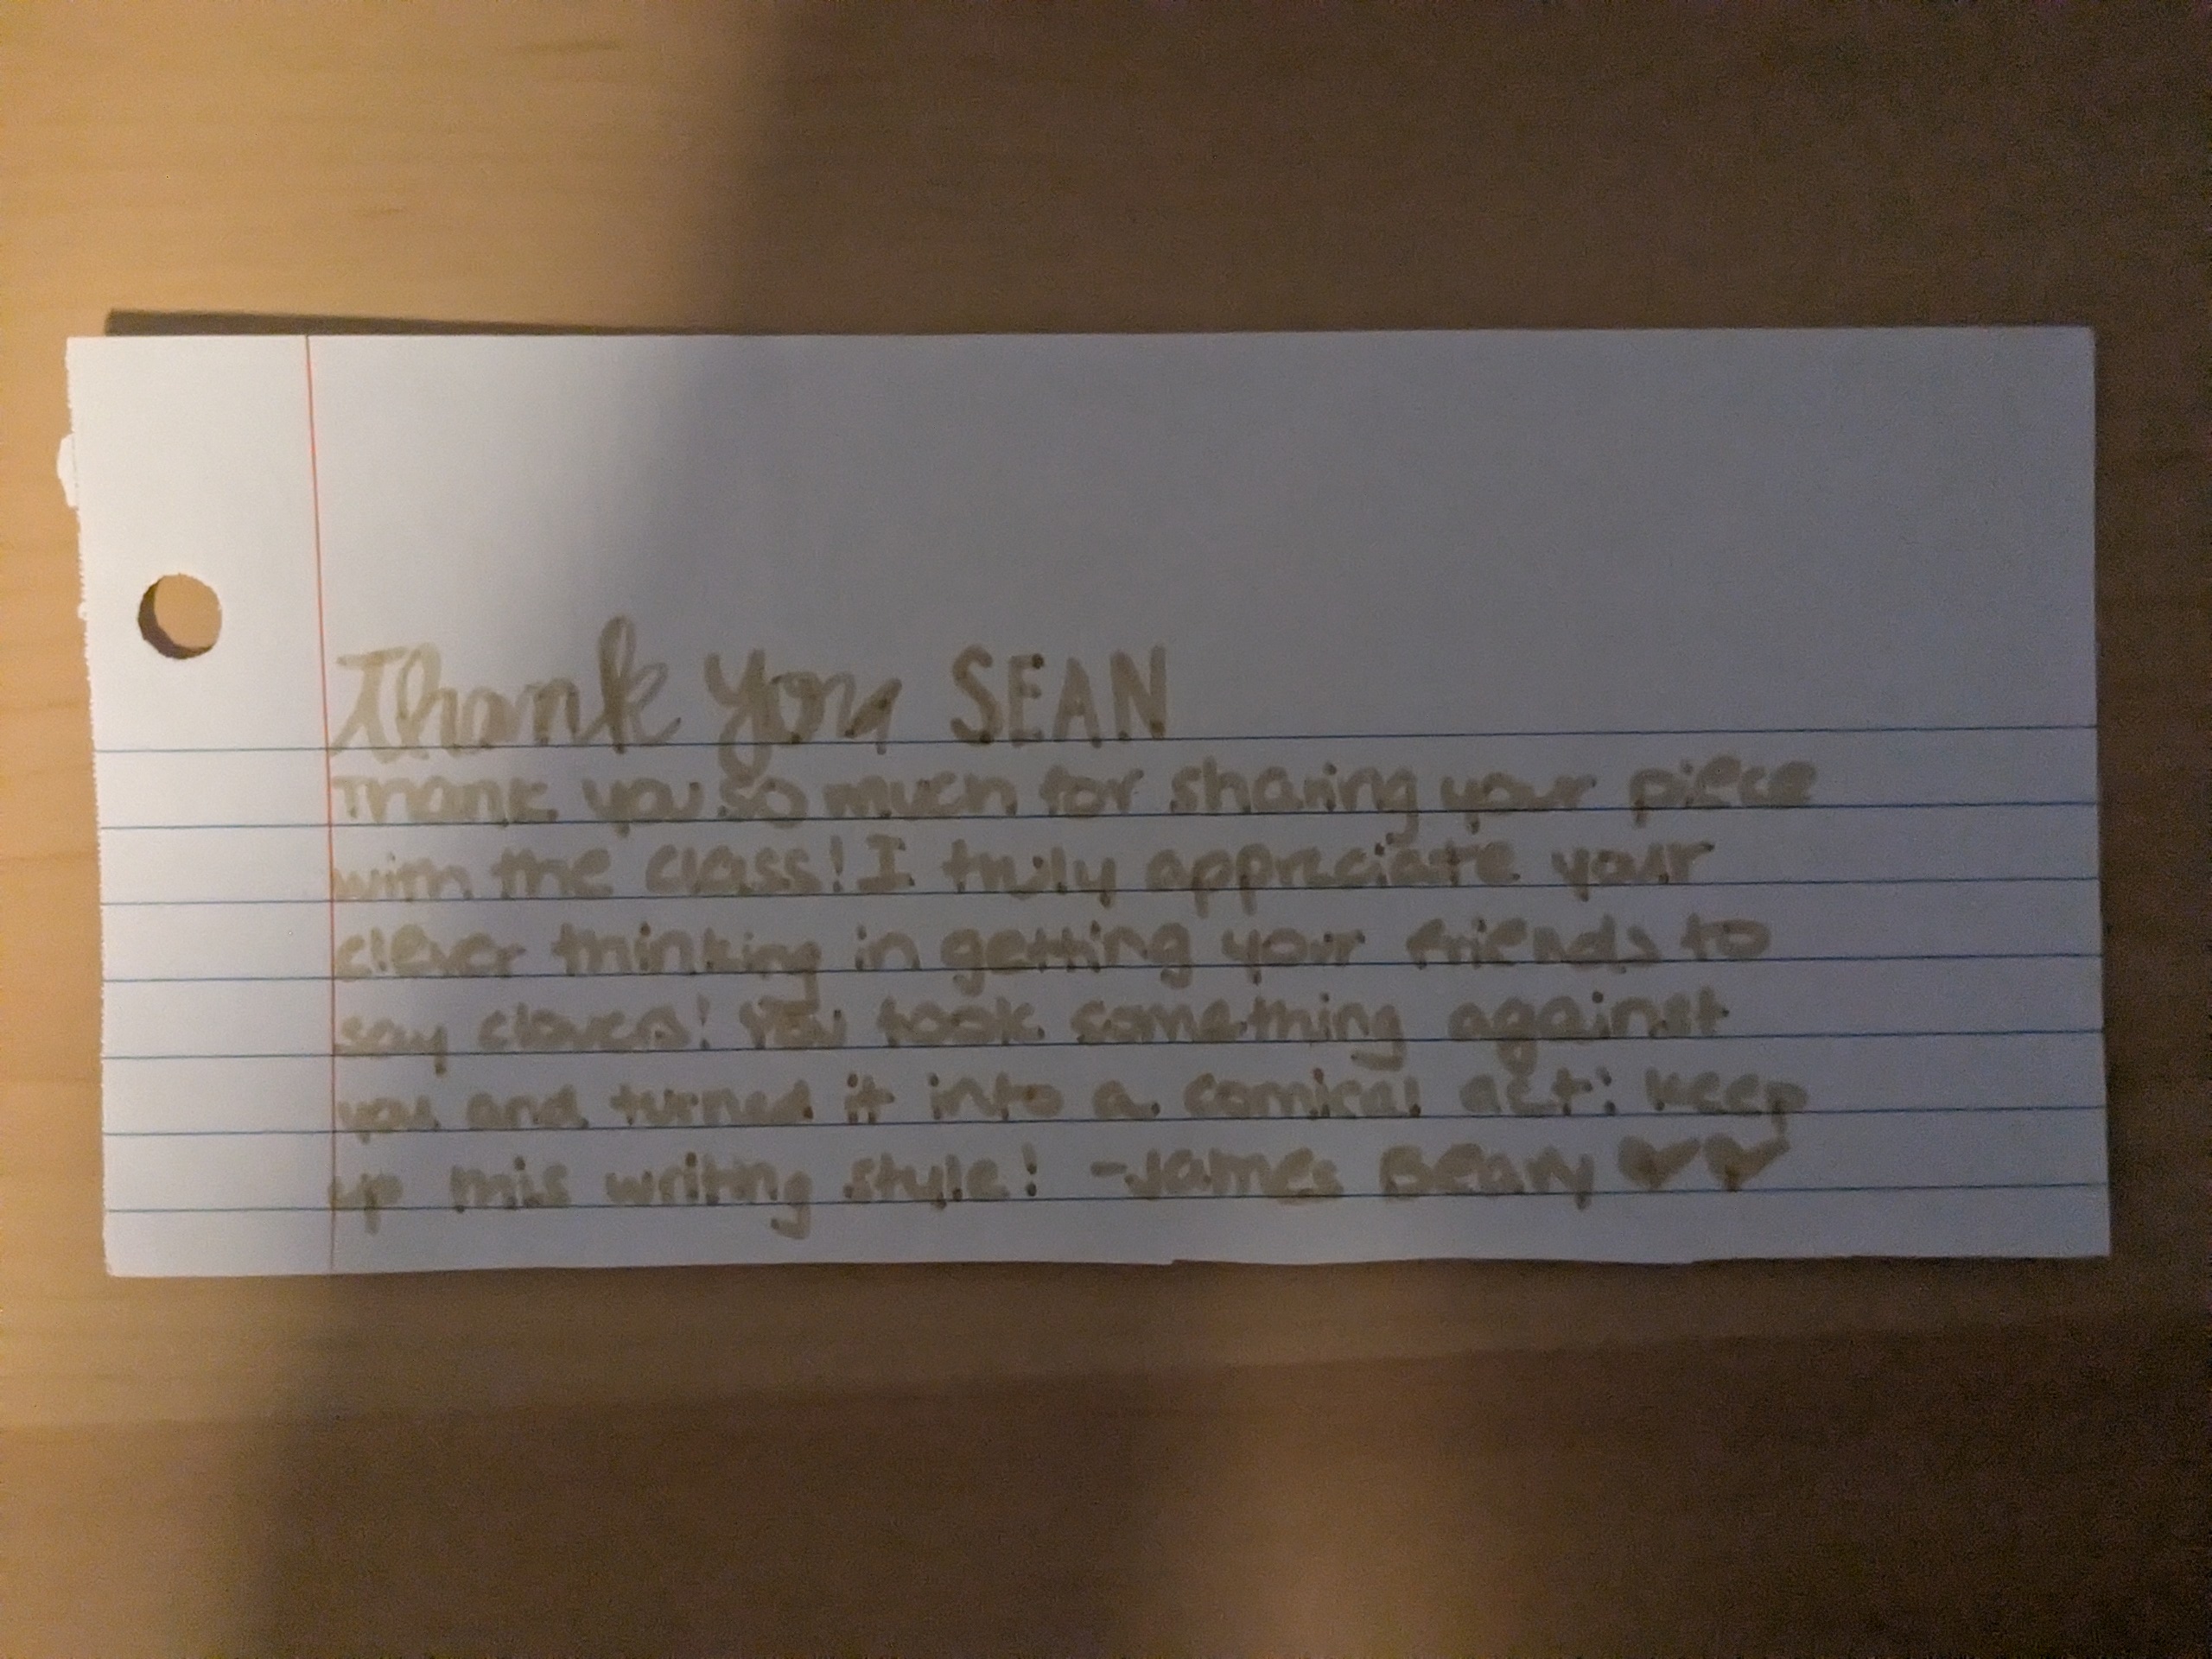 Thank you SEAN
Thank you so much for sharing your piece
with the class! I truly appreciate your
clever thinking in getting your friends to
say clover! You took something against
you and turned it into a comical act: keep
up this writing style! -James